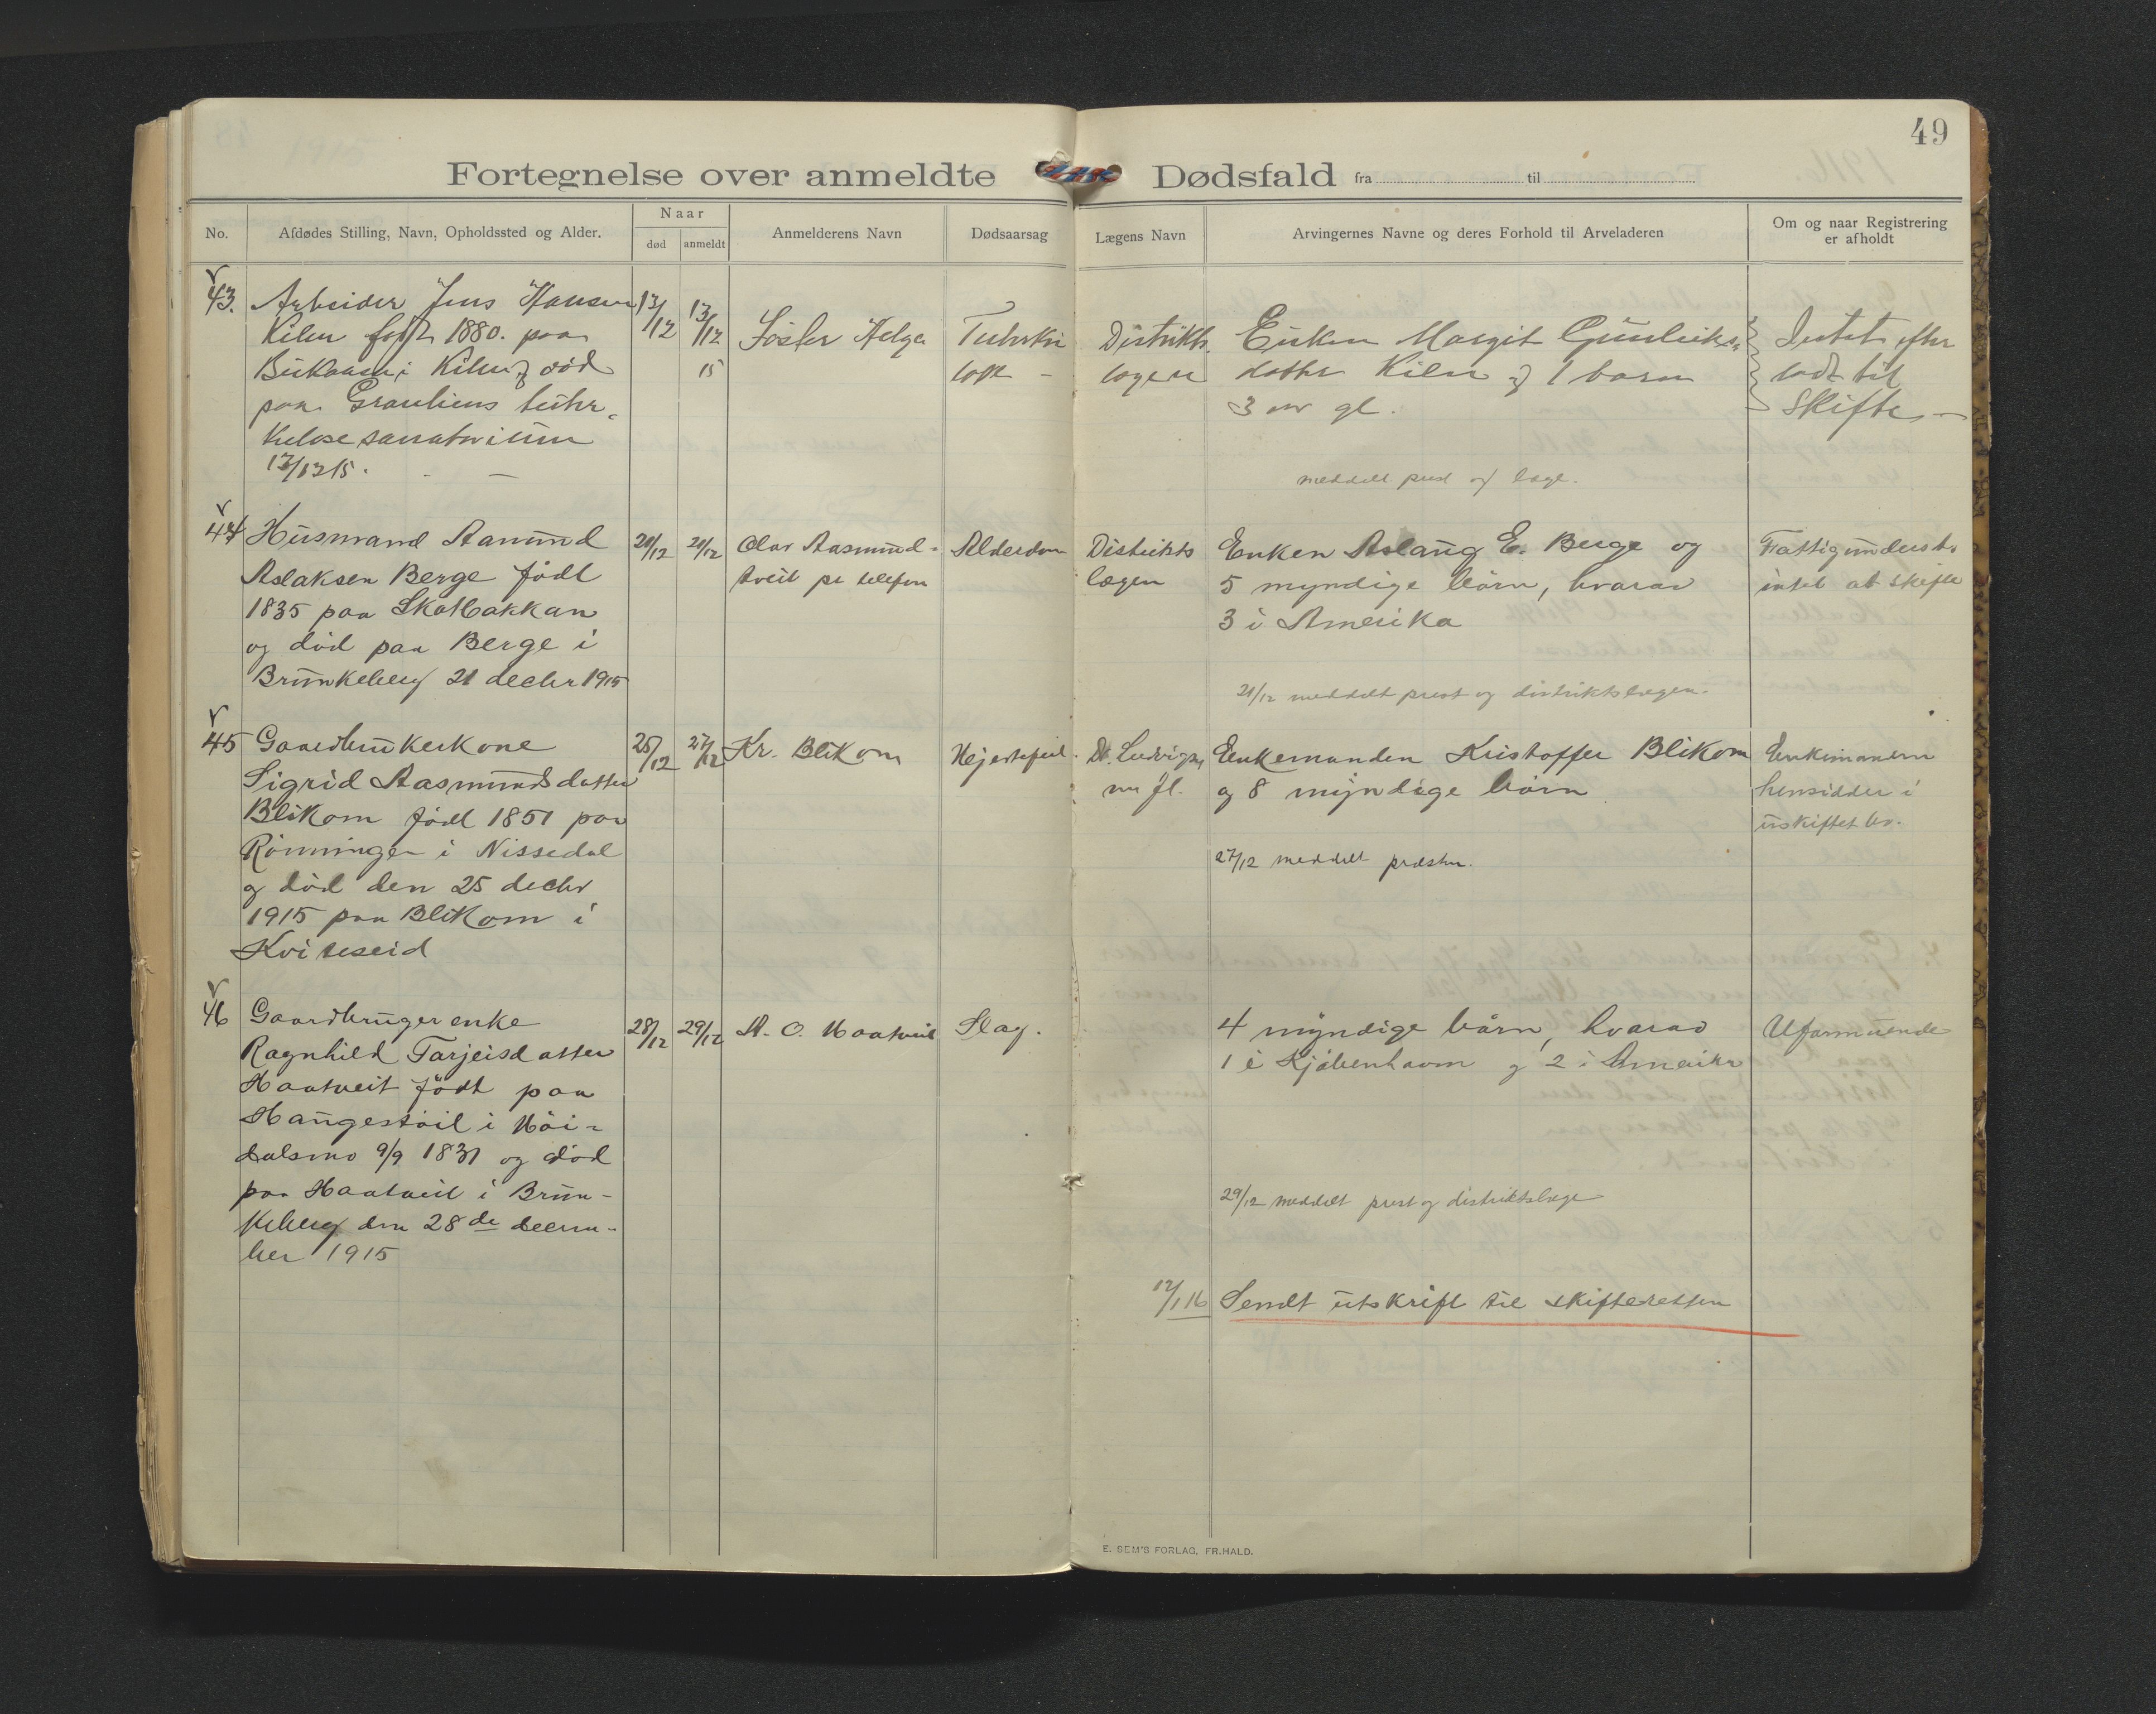 49
Fortegnelse over anmeldte Dødsfald fra til
No.
Afdødes Stilling, Navn, Opholdssted og Alder.
Naar
død
anmeldt
Anmelderens Navn
Dødsaarsag
Lægens Navn
Arvingernes Navne og deres Forhold til Arveladeren
Om og naar Registrering
er afholdt
43.
Arbeider Jens Hansen
Kilen født 1880. paa
i Kilen og død
paa Grauliens tuber-
kulose sanatorium
13/12 15.
13/12
13/12
15
Søster Helga
Tuberku
lose
Distrikts.
lægen
Enken Margit Gunleiks-
datter Kilen og 1 barn
3 aar gl.
meddelt prest og læge.
Intet efter
ladt til
Skifte
44
Husmand Aamund
Aslaksen Berge født
1835 paa Skatbakkan
og død paa Berge i
Brunkeberg 21 decbr 1915
20/12
20/12
Olav Aasmund-
tveit pr telefon
Alderdom
Distrikts
lægen
Enken Aslaug E. Berge og
5 myndige børn, hvorav
3 i Amerika
21/12 meddelt prest og distriktslægen.
Fattigunderst.
intet at skifte
45
Gaardbrukerkone
Sigrid Aasmundsdatter
Blikom født 1851 paa
Rønningen i Nissedal
og død den 25 decbr
1915 paa Blikom i
Kviteseid
25/12
27/12
Kr. Blikom
Hjertefeil.
Dr.
m fl.
Enkemanden Kristoffer Blikom
og 8 myndige børn
27/12 meddelt presten.
Enkemanden
hensidder i
uskiftet bo.
46
Gaardbruger enke
Ragnhild Tarjeisdatter
Haatveit født paa
Haugestøil i Høi-
dalsmo 9/9 1831 og død
paa Haatveit i Brun-
keberg den 28de decem-
ber 1915
28/12
29/12
H. O. Haatveit
Slag.
4 myndige børn, hvorav
1 i Kjøbenhavn og 2 i Amerika
29/12 meddelt prest og distriktslæge
Uformuende
12/1 16 Sendt utskrift til skifteretten
E. SEM'S FORLAG, FR.HALD.